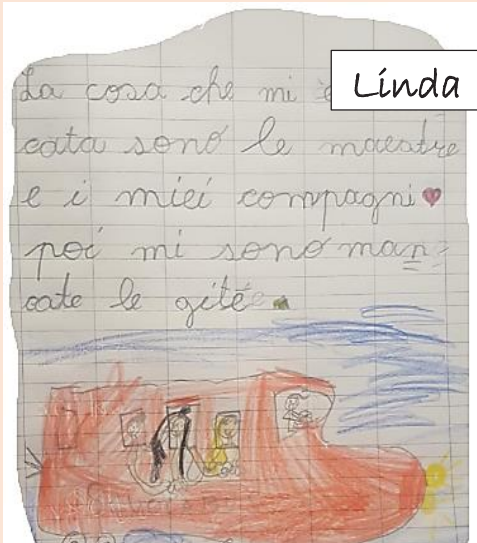 La cosa che mi è
Linda
cata sono le maestre
e i miei compagni
poi mi sono man=
cate le gite